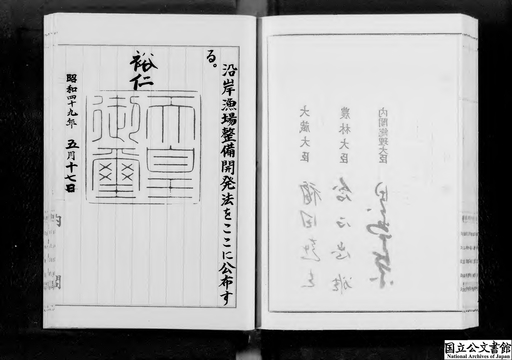 内閣総理大臣
農林大臣
大蔵大臣
沿岸漁場整備開発法をここに公布す
る。
裕仁
天皇
御璽
昭和四十九年 五月十七日
国立公文書館
National Archives of Japan